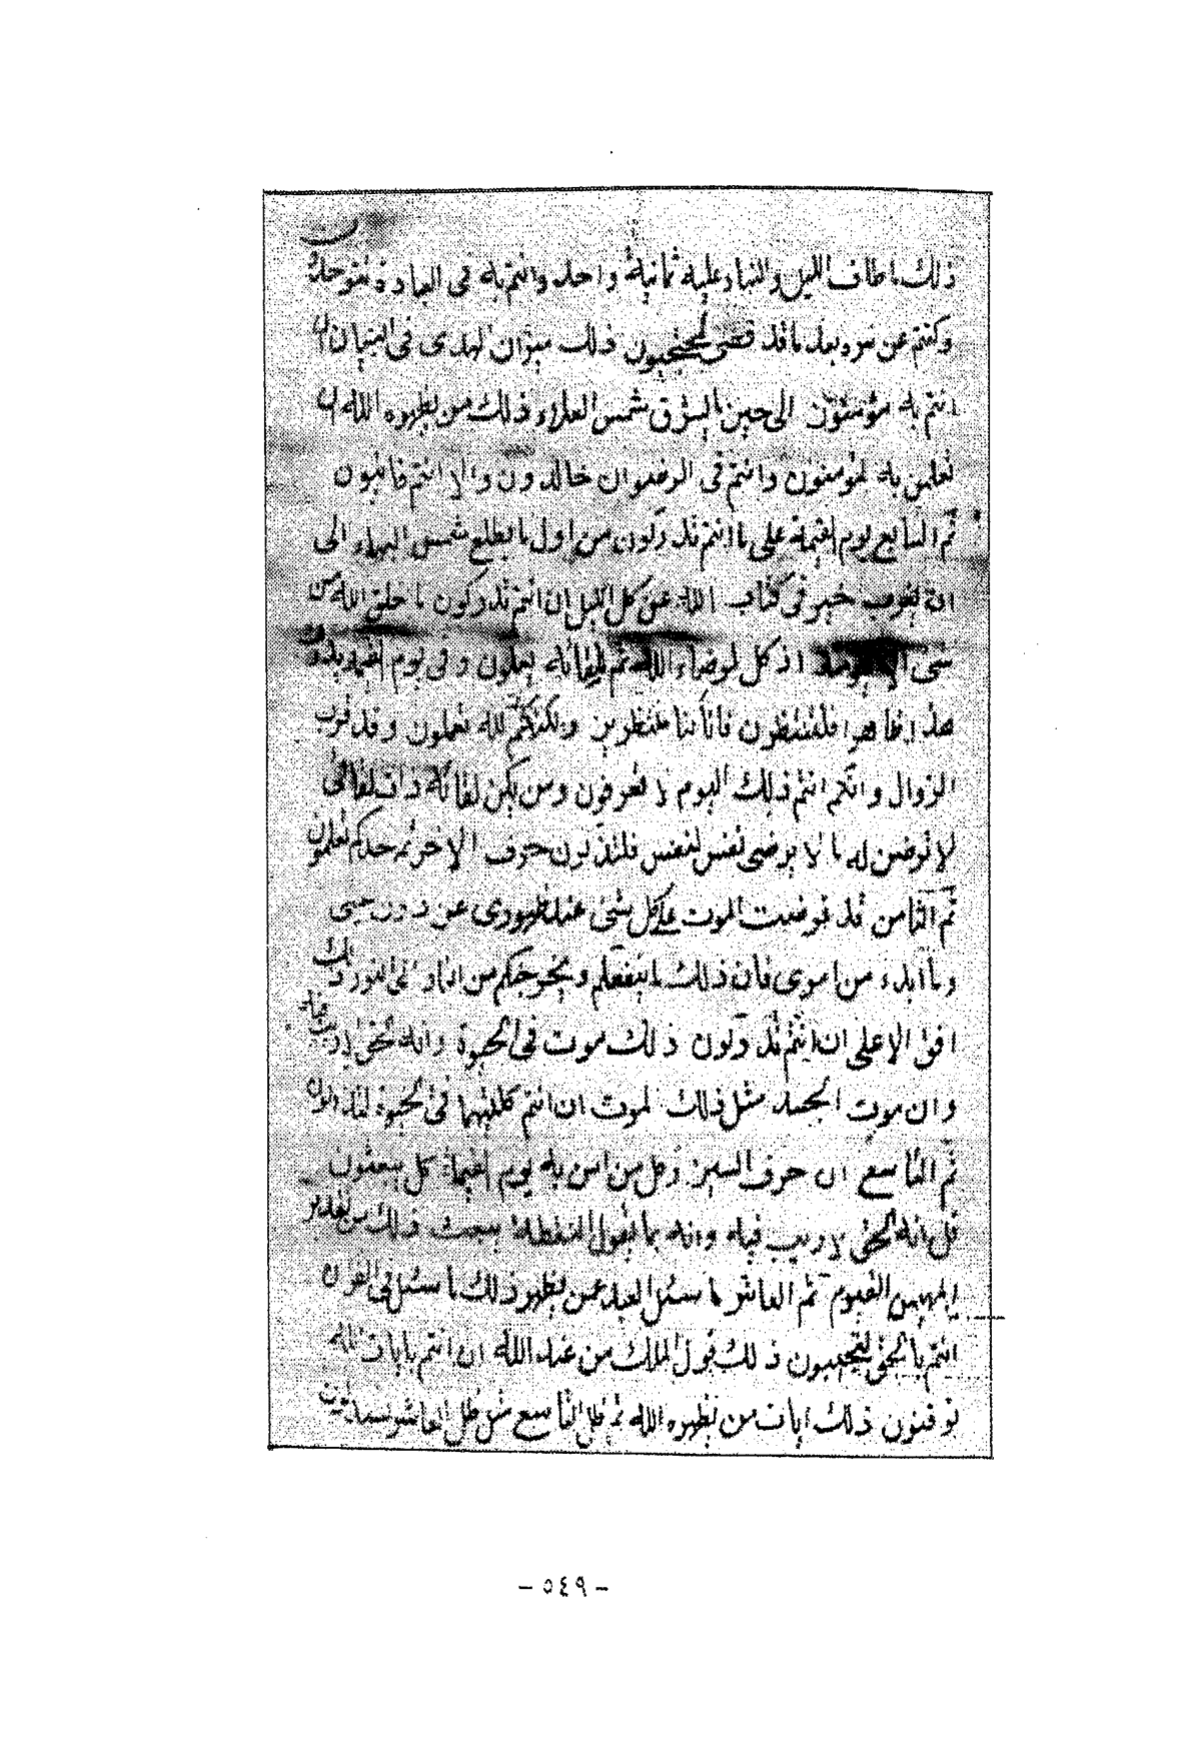 ذلك ما طاف الليل والنهار عليه ثمانية واحد وانتم به في العبادة لموحدون
وكنتم عن نمره بعد ما قد قضى لمحتجبون ذلك ميزان الهدى في البيان ان
انتم به مؤمنون الى حين ما يشرق شمس العلاء ذلك من يظهره الله ان
تعلمن به لمؤمنون وانتم في الرضوان خالدون والا انتم فانيون
ثم السابع يوم القيمة على ما انتم تدركون من اول ما يطلع شمس البهاء الى
ان يغرب خير في كتاب الله عن كل الليل ان انتم تدركون ما خلق الله من
شئ الا ليومئذ اذ كل لرضاء الله ثم للقائه يعملون وفي يوم القيمة يدرك
هذا ظاهرا فلتنتظرون فانا كنا منتظرين ولكنكم لله تعملون وقد قرب
الزوال وانكم انتم ذلك اليوم لا تعرفون ومن يكن لقائه ذات لقائى
لا ترضين له ما لا يرضى نفس لنفس فلتدركون حرف الاخر ثم حدكم تعلمون
ثم الثامن قد فرضت الموت على كل شئ عند ظهورى عن دون حبى
وما ابدء من امرى فان ذلك ما ينفعكم ويخرجكم من النار الى النور ذلك
افق الاعلى ان انتم تدركون ذلك موت في الحيوة وانه لحق لا ريب فيه
وان موت الجسد مثل ذلك لموت ان انتم كلتيهما في الحيوة لتدركون
ثم التاسع ان حرف السين وكل من امن به يوم القيمة كل يبعثون
قل انه لحق لا ريب فيه وانه بما يقول النقطة يبعث ذلك من تقدير
المهيمن القيوم ثم العاشر ما سئل العبد عمن يظهر ذلك ما سئل في القبر ان
انتم بالحق لتجيبون ذلك قول الملك من عند الله ان انتم بايات الله
توقنون ذلك ايات من يظهره الله ثم ظل التاسع مثل ظل العاشر
- ٥٤٩ -